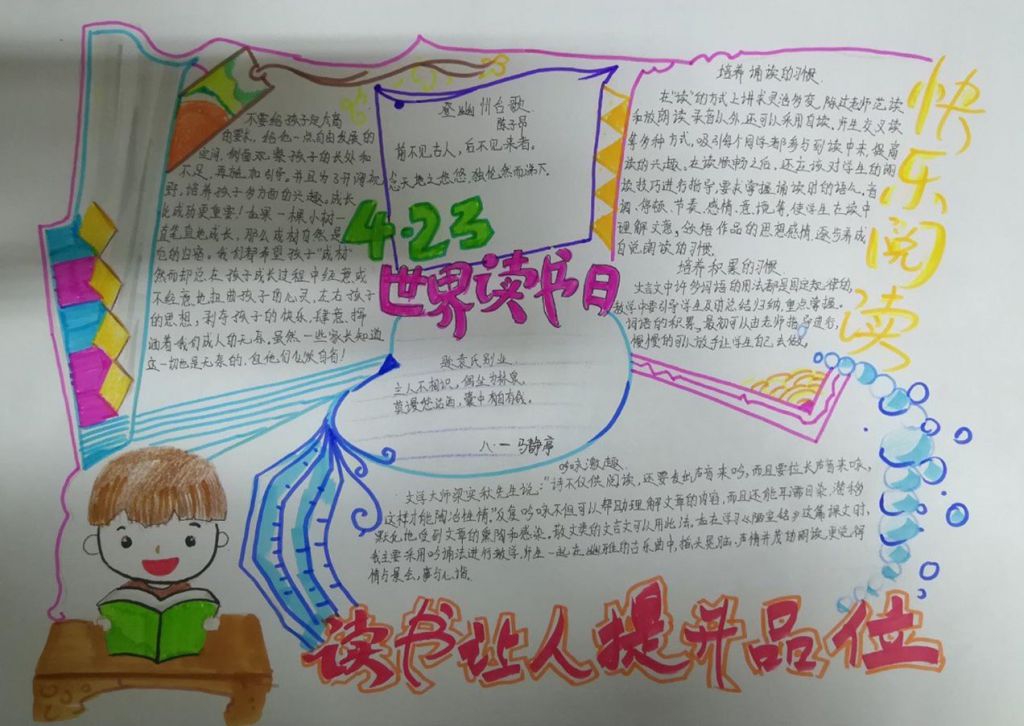 快乐阅读
4.23
世界读书日
登幽州台歌
陈子昂
前不见古人，后不见来者。
念天地之悠悠，独怆然而涕下。
不要给孩子定太高
的要求，给他一点自由发展的
空间，侧面观察孩子的长处和
不足，再施加引导，并且为了开阔视
野，培养孩子多方面的兴趣，成长
比成功更重要！如果一棵小树一
直笔直地成长，那么成材自然是
它的归宿，我们都希望孩子“成材”
然而却总在孩子成长过程中经意或
不经意地扭曲孩子的心灵，左右孩子
的思想，剥夺孩子的快乐，肆意、挥
洒着我们成人的无奈，虽然一些家长知道
这一切也是无奈的，但他们么欺自有！
培养诵读的习惯
在“读”的方式上讲求灵活多变，除过老师范读
和放朗读录音以外，还可以采用自读、学生交叉读
等多种方式，吸引每个同学都参与到读中来，提高
读的兴趣。在读顺畅之后，还应该对学生的朗
读技巧进行指导，要求掌握诵读时的语气、音
调、停顿、节奏、感情、意境等，使学生在读中
理解文意，领悟作品的思想感情，逐步养成
自觉阅读的习惯。
培养积累的习惯
文言文中许多词语的用法都是固定规律的，
教学中要引导学生及时总结归纳，重点掌握。
词语的积累，最初可以由老师指导进行，
慢慢的可以放手让学生自己去做。
题袁氏别业
主人不相识，偶坐为林泉。
莫谩愁沽酒，囊中自有钱。
八·一 马静亭
吟咏激趣
文学大师梁实秋先生说：“诗不仅供阅读，还要发出声音来吟，而且要拉长声音来咏，
这样才能陶冶性情。”反复吟咏不但可以帮助理解文章的内容，而且还能耳濡目染，潜移
默化地受到文章的熏陶和感染，散文类的文言文可以用此法。如在学习《陋室铭》这篇课文时，
我主要采用吟诵法进行教学，学生一起在幽雅的古乐曲中，摇头晃脑，声情并茂的朗读，更觉得
情与景会，事与心谐。
读书让人提升品位